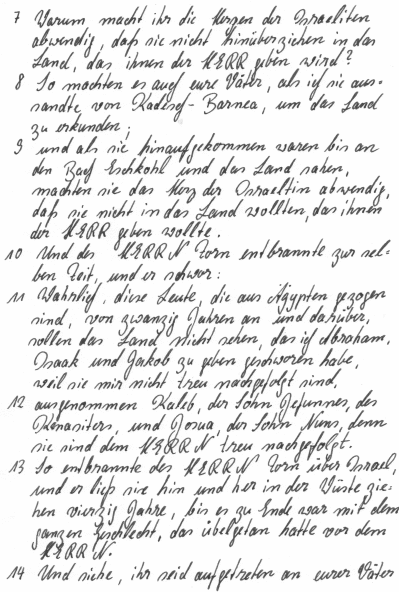 7 Warum macht ihr die Herzen der Israeliten
abwendig, daß sie nicht hinüberziehen in das
Land, das ihnen der HERR geben wird?
8 So machten es auch eure Väter, als ich sie aus-
sandte von Kadesch-Barnea, um das Land
zu erkunden;
9 und als sie hinaufgekommen waren bis an
den Bach Eschkohl und das Land sahen,
machten sie das Herz der Israeltin abwendig,
daß sie nicht in das Land wollten, das ihnen
der HERR geben wollte.
10 Und des HERRN Zorn entbrannte zur sel-
ben Zeit, und er schwor:
11 Wahrlich, diese Leute, die aus Ägypten gezogen
sind, von zwanzig Jahren an und darüber,
sollen das Land nicht sehen, das ich Abraham,
Isaak und Jakob zu geben geschworen habe,
weil sie mir nicht treu nachgefolgt sind,
12 ausgenommen Kaleb, der Sohn Jefunnes, des
Kenasiters, und Josua, der Sohn Nuns, denn
sie sind dem HERRN treu nachgefolgt.
13 So entbrannte des HERRN Zorn über Israel,
und er ließ sie hin und her in der Wüste zie-
hen vierzig Jahre, bis es zu Ende war mit dem
ganzen Geschlecht, das übelgetan hatte vor dem
HERRN.
14 Und siehe, ihr seid aufgetreten an eurer Väter